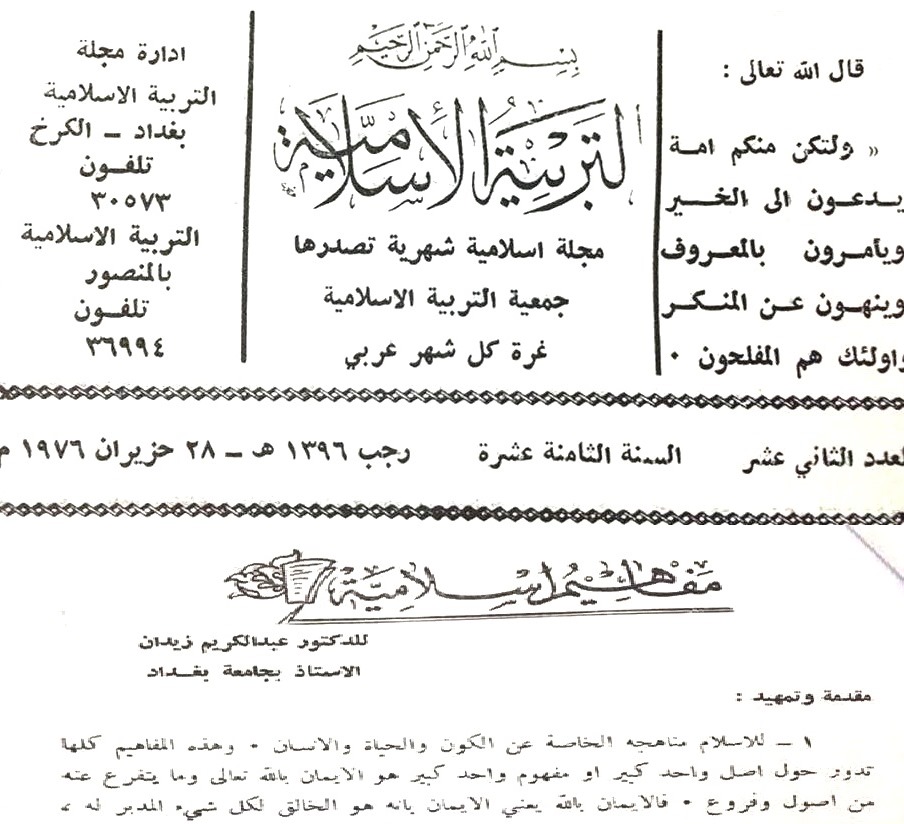 قال الله تعالى :
« ولتكن منكم امة
يدعون الى الخير
ويأمرون بالمعروف
وينهون عن المنكر
واولئك هم المفلحون ٠
بسم الله الرحمن الرحيم
التربية الإسلامية
مجلة اسلامية شهرية تصدرها
جمعية التربية الاسلامية
غرة كل شهر عربي
ادارة مجلة
التربية الاسلامية
بغداد – الكرخ
تلفون
٣٠٥٧٣
التربية الاسلامية
بالمنصور
تلفون
٣٦٩٩٤
العدد الثاني عشر السنة الثامنة عشرة رجب ١٣٩٦ هـ – ٢٨ حزيران ١٩٧٦ م
مفاهيم إسلامية
للدكتور عبدالكريم زيدان
الاستاذ بجامعة بغداد
مقدمة وتمهيد :
١ – للاسلام مناهجه الخاصة عن الكون والحياة والانسان ٠ وهذه المفاهيم كلها
تدور حول اصل واحد كبير او مفهوم واحد كبير هو الايمان بالله تعالى وما يتفرع عنه
من اصول وفروع ٠ فالايمان بالله يعني الايمان بانه هو الخالق لكل شيء المدبر له ،